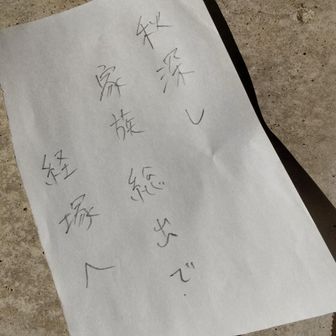 秋深し
家族総出で
経塚へ